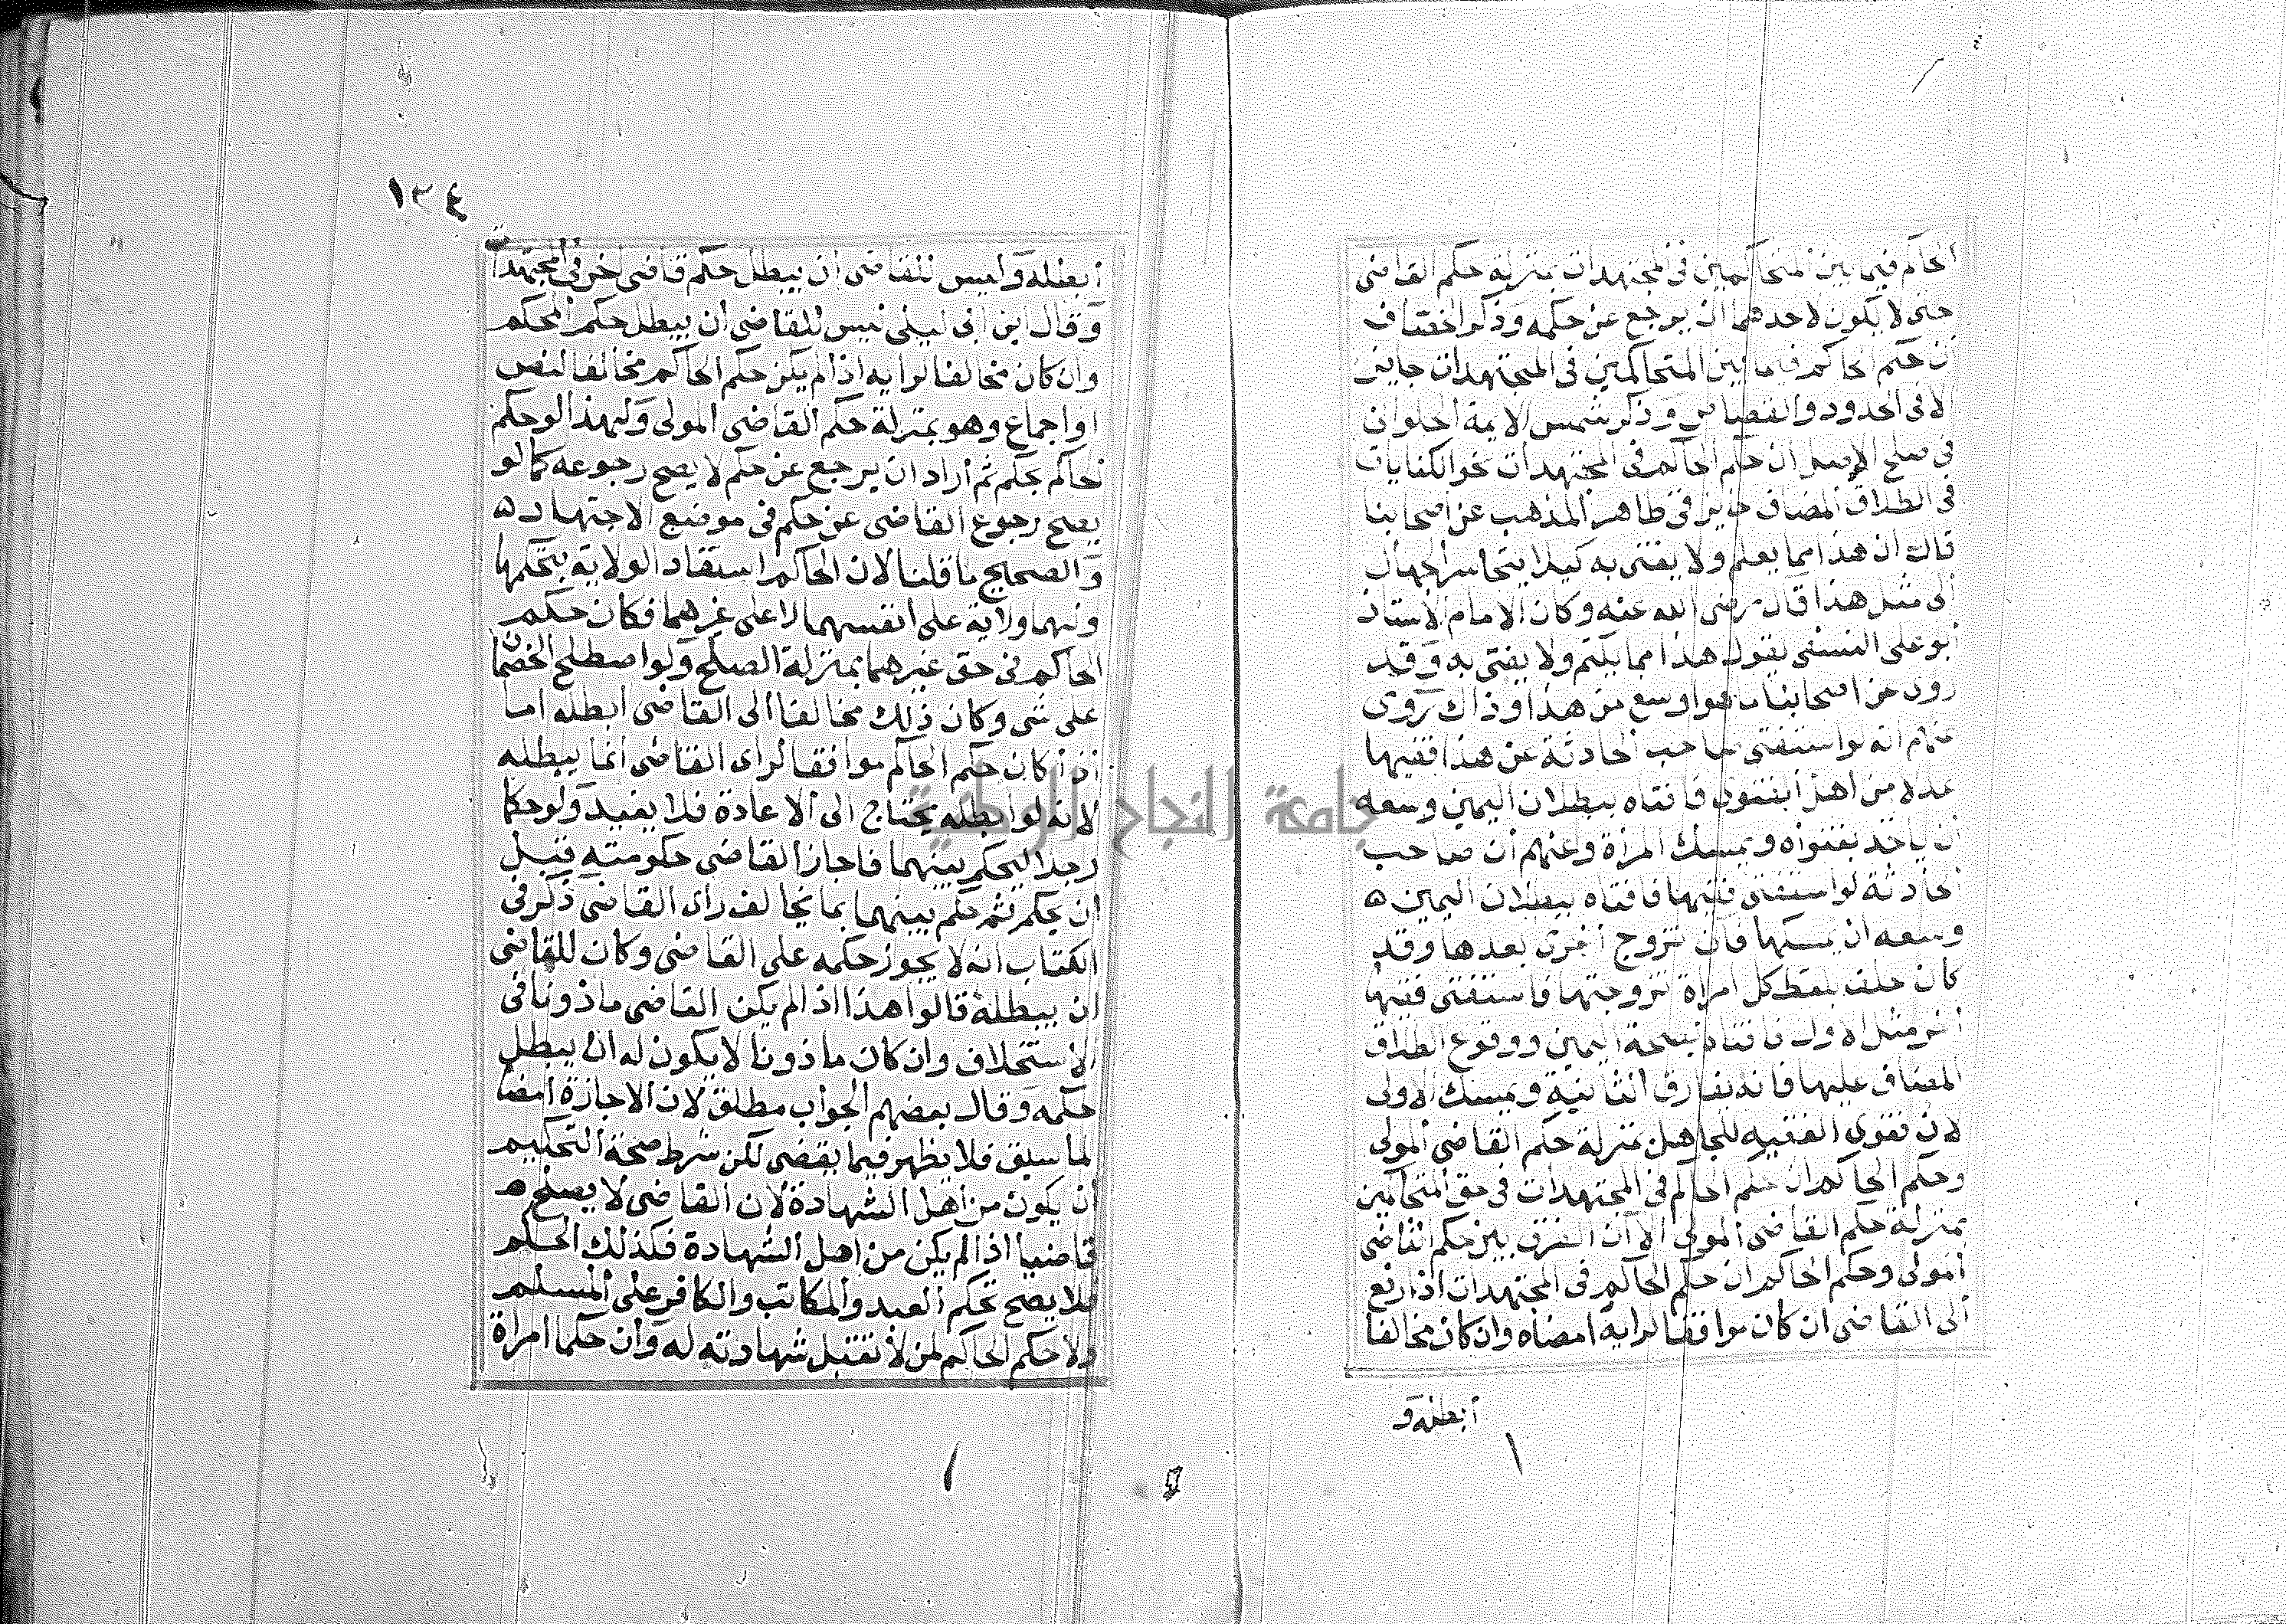 الحاكم فيما بين المتحاكمين فى المجتهدات بمنزلة حكم القاضى
حتى لا يكون لاحدهما ان يرجع عن حكمه وذكر الخصاف
ان حكم الحاكم فيما بين المتحاكمين فى المجتهدات جايز
الا فى الحدود والقصاص وذكر شمس الايمة الحلوانى
فى صلح الاصل ان حكم الحاكم فى المجتهدات نحو الكنايات
فى الطلاق المضاف جايز فى ظاهر المذهب عن اصحابنا
قالت ان هذا مما يعلم ولا يفتى به كيلا يتجاسر الجهال
الى مثل هذا قال رضى الله عنه وكان الامام الاستاذ
ابو على النسفى يقول هذا مما يكتم ولا يفتى به وقد
روى عن اصحابنا ما هو اوسع من هذا وذاك روى
عنهم انه لو استفتى صاحب الحادثة عن هذا فقيها
عدلا من اهل الفتوى فافتاه ببطلان اليمين وسعه
ان ياخذ بفتواه ويمسك المراة وعنهم ان صاحب
الحادثة لو استفتى فقيها فافتاه ببطلان اليمين ه
وسعه ان يمسكها فان تزوج اخرى بعدها وقد
كان حلف بلفظ كل امراة تزوجتها فاستفتى فقيها
اخر مثل الاول فافتاه بصحة اليمين ووقوع الطلاق
المضاف عليها فانه يفارق الثانية ويمسك الاولى
لان فتوى الفقيه للجاهل بمنزلة حكم القاضى المولى
وحكم الحاكم ان حكم الحاكم فى المجتهدات فى حق المتحاكمين
بمنزلة حكم القاضى المولى الا ان الفرق بين حكم القاضى
المولى وحكم الحاكم ان حكم الحاكم فى المجتهدات اذا رفع
الى القاضى ان كان موافقا لرايه امضاه وان كان مخالفا
ابطله و
١٣٤
ابطله وليس للقاضى ان يبطل حكم قاضى اخر فى المجتهدات
وقال ابن ابى ليلى ليس للقاضى ان يبطل حكم المحكم
وان كان مخالفا لرايه اذا لم يكن حكم الحاكم مخالفا لنص
او اجماع وهو بمنزلة حكم القاضى المولى ولهذا لو حكم
الحاكم بحكم ثم اراد ان يرجع عن حكم لا يصح رجوعه كما لو
يصح رجوع القاضى عن حكم فى موضع الاجتهاد ه
والصحيح ما قلنا لان الحاكم استفاد الولاية بتحكمها
ولهما ولاية على انفسهما لا على غيرهما فكان حكم
الحاكم فى حق غيرهما بمنزلة الصلح ولو اصطلح الخصمان
على شى وكان ذلك مخالفا الى القاضى ابطله اما
اذا كان حكم الحاكم موافقا لراى القاضى انما يبطله
لانه لو ابطله يحتاج الى الاعادة فلا يفيد ولو حكما
رجلا ليحكم بينهما فاجاز القاضى حكومته قبل
ان يحكم ثم حكم بينهما بما يخالف راى القاضى ذكر فى
الكتاب انه لا يجوز حكمه على القاضى وكان للقاضى
ان يبطله قالوا هذا اذا لم يكن القاضى ماذونا فى
الاستخلاف وان كان ماذونا لا يكون له ان يبطل
حكمه وقال بعضهم الجواب مطلق لان الاجازة امضا
لما سبق فلا يظهر فيما يقضى لكن شرط صحة التحكيم
ان يكون من اهل الشهادة لان القاضى لا يصلح
قاضيا اذا لم يكن من اهل الشهادة فكذلك الحكم
فلا يصح تحكم العبد والمكاتب والكافر على المسلم
ولا حكم الحاكم لمن لا تقبل شهادته له وان حكما امراة
جامعة النجاح الوطنية